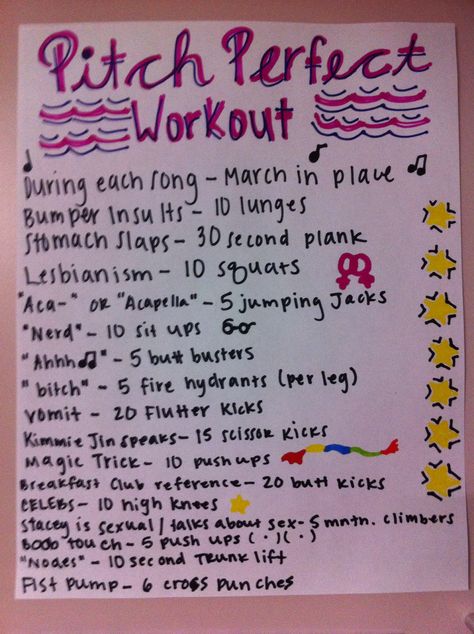 Pitch Perfect
Workout
During each song - March in place
Bumper Insults - 10 lunges
Stomach slaps - 30 second plank
Lesbianism - 10 squats
"Aca-" or "Acapella" - 5 jumping Jacks
"Nerd" - 10 sit ups
"Ahhh♫" - 5 butt busters
"bitch" - 5 fire hydrants (per leg)
Vomit - 20 Flutter Kicks
Kimmie Jin speaks - 15 scissor kicks
Magic Trick - 10 pushups
Breakfast Club reference - 20 butt kicks
CELEBS - 10 high knees
Stacey is sexual / talks about sex - 5 mntn. climbers
Boob touch - 5 push ups (·)(·)
"Nodes" - 10 second Trunk lift
Fist Pump - 6 cross punches